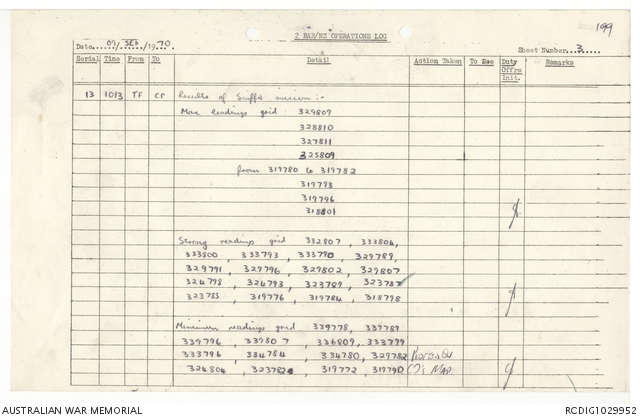 199
2 RAR/NZ OPERATIONS LOG
Date 07/SEP/1970
Sheet Number 3
Serial Time From To Detail Action Taken To See Duty Offrs Init. Remarks
13 1013 TF CP Results of Sniffa mission:-
Max readings grid 329809
328810
327811
325809
from 319780 to 319782
319793
319796
318801
Strong readings grid 332807, 333804,
333800, 333793, 333790, 329789,
329791, 329796, 329802, 329807
324798, 324793, 323789, 323787
323783, 319776, 319784, 318798
Minimum readings grid 339778, 337789
339796, 339807, 336809, 333799
333796, 334784, 334780, 329782
324804, 323782, 319772, 319790
AUSTRALIAN WAR MEMORIAL
RCDIG1029952